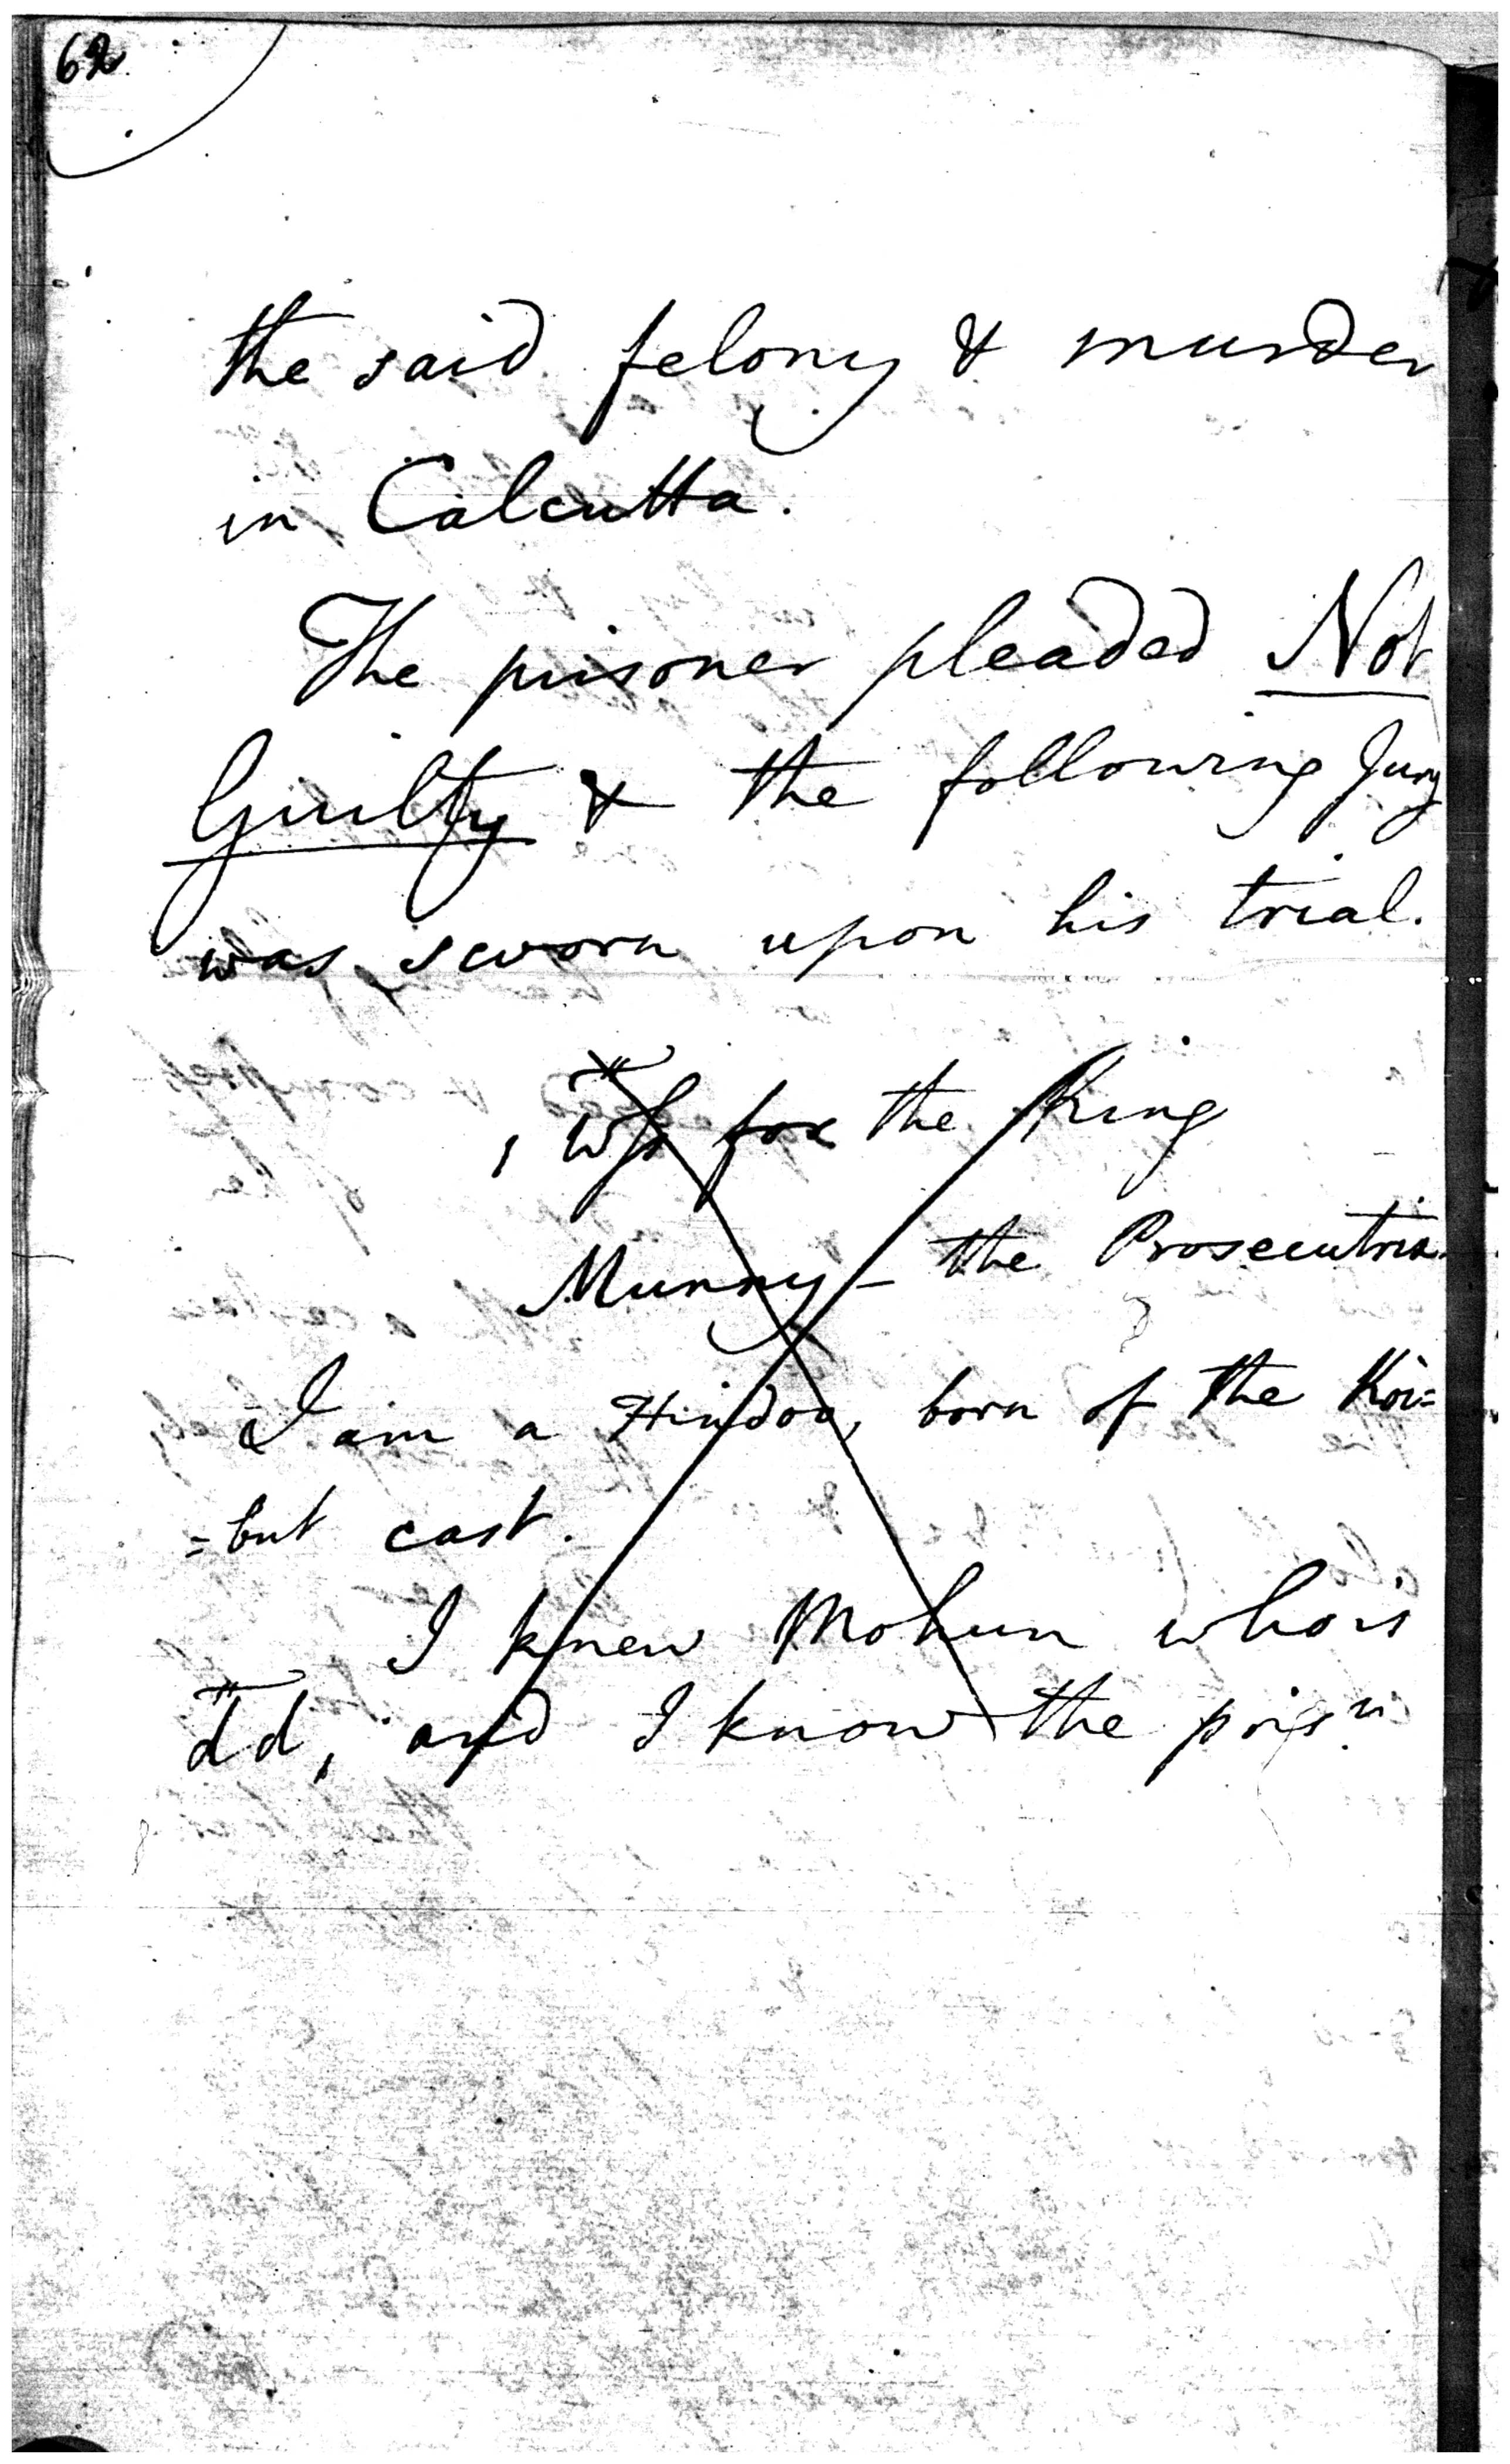 62
the said felony & murder
in Calcutta.
The prisoner pleaded Not
Guilty & the following Jury
was sworn upon his trial.
1 Wss for the King
Munny – the Prosecutrix
I am a Hindoo, born of the Koi=
=but cast.
I knew Mohun who is
dd, and I know the prisr